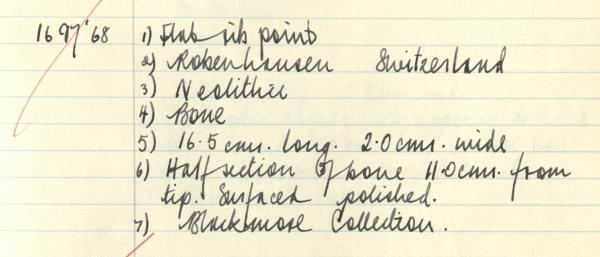 1697'68 1) Flat rib point
2) Robenhausen Switzerland
3) Neolithic
4) Bone
5) 16.5 cms. long. 2.0 cms. wide
6) Half section of bone 11.0 cms. from
tip. Surfaced polished.
7) Blackmore Collection.